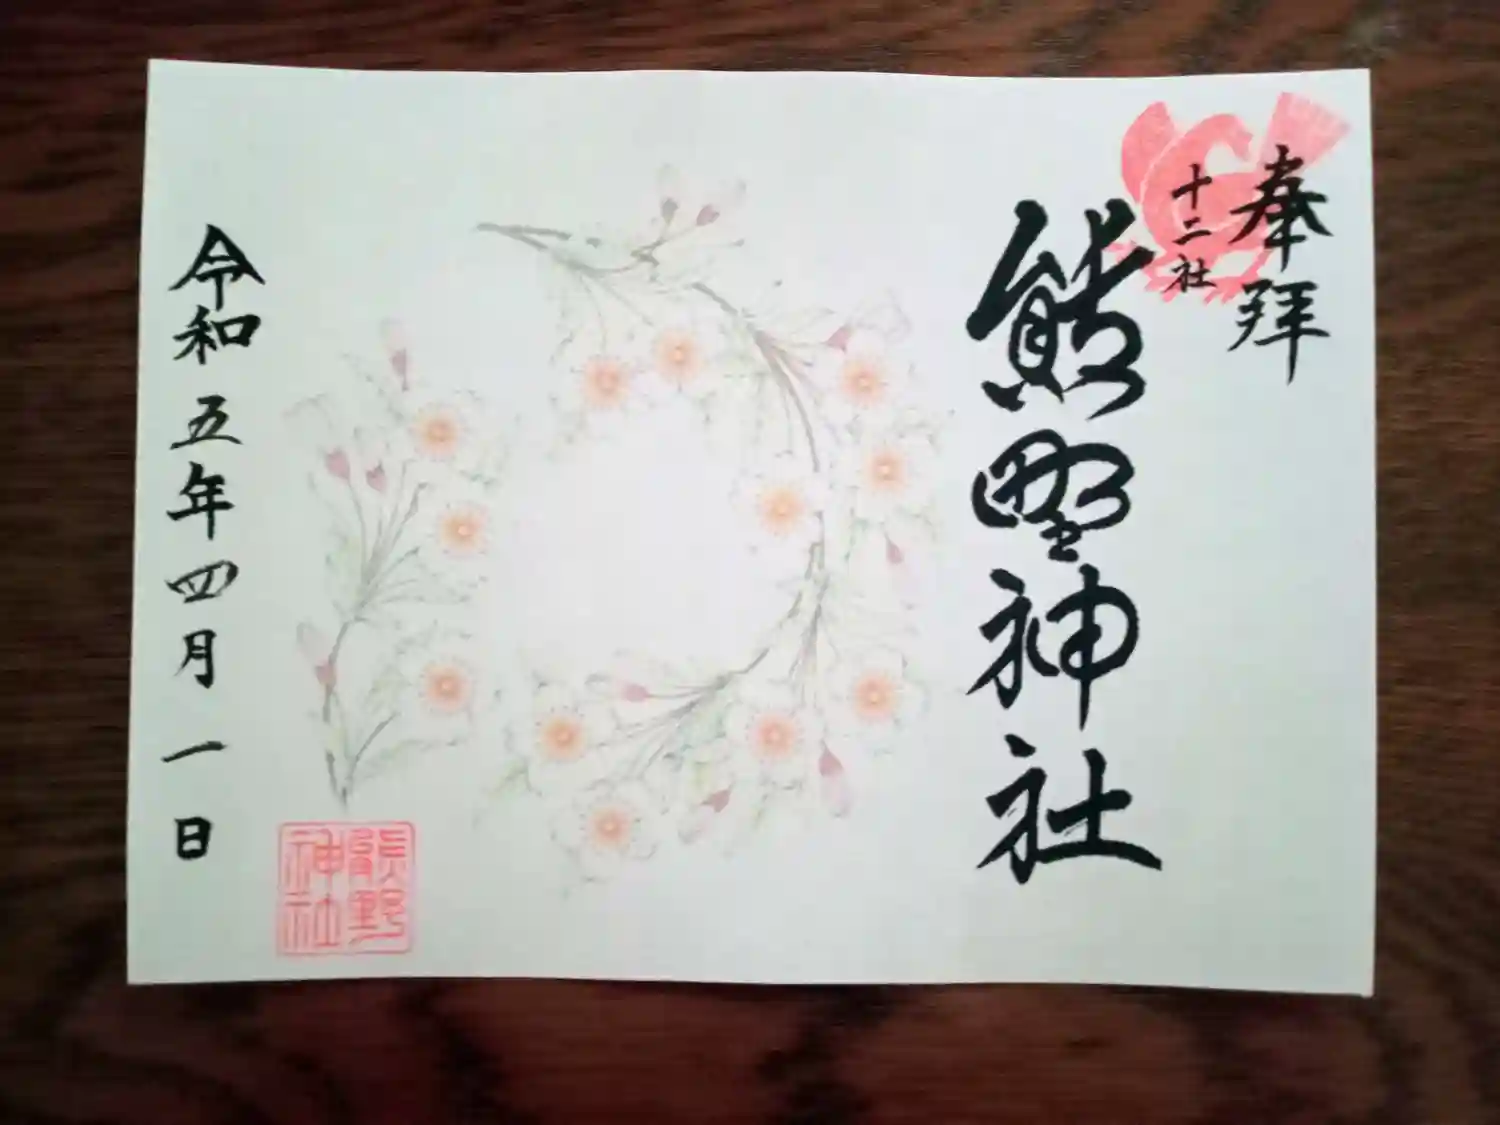 奉拝
十二社
熊野神社
令和五年四月一日
熊野神社